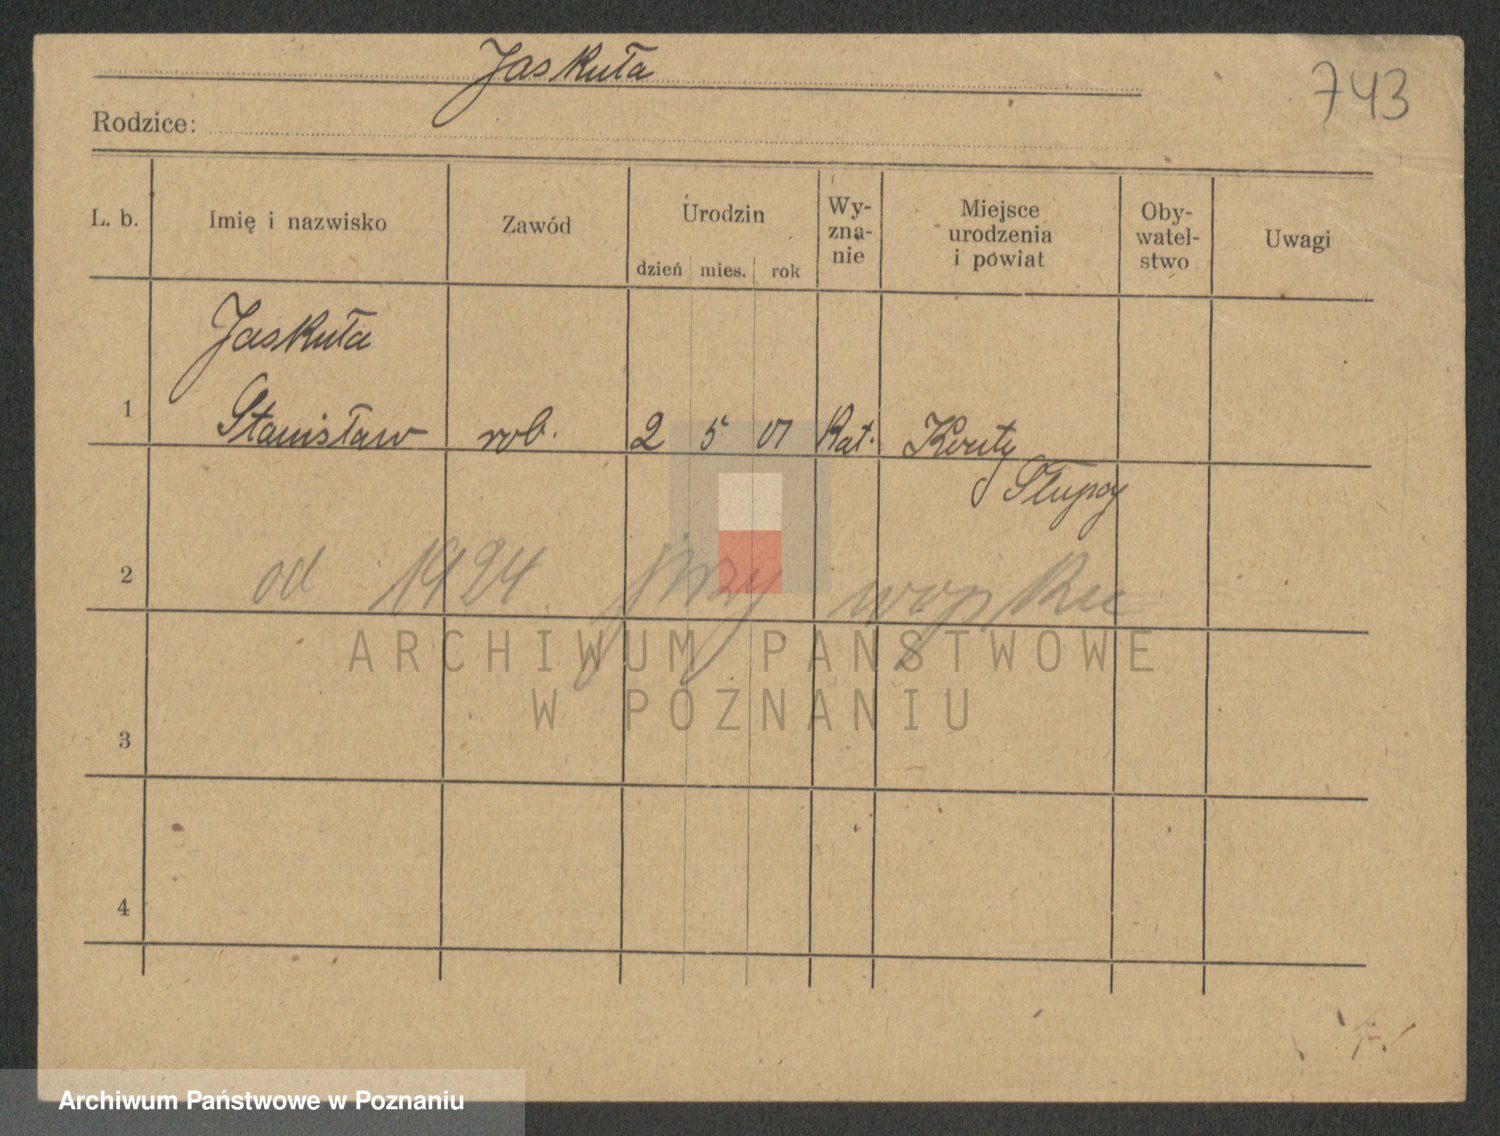 Jaskuła
743
Rodzice:
L. b.
Imię i nazwisko
Zawód
Urodzin
dzień mies. rok
Wy-
zna-
nie
Miejsce
urodzenia
i powiat
Oby-
watel-
stwo
Uwagi
Jaskuła
1 Stanisław rob. 2 5 01 Kat.
Słupcy
2 od 1924 przy wojsku
ARCHIWUM PAŃSTWOWE
W POZNANIU
3
4
Archiwum Państwowe w Poznaniu